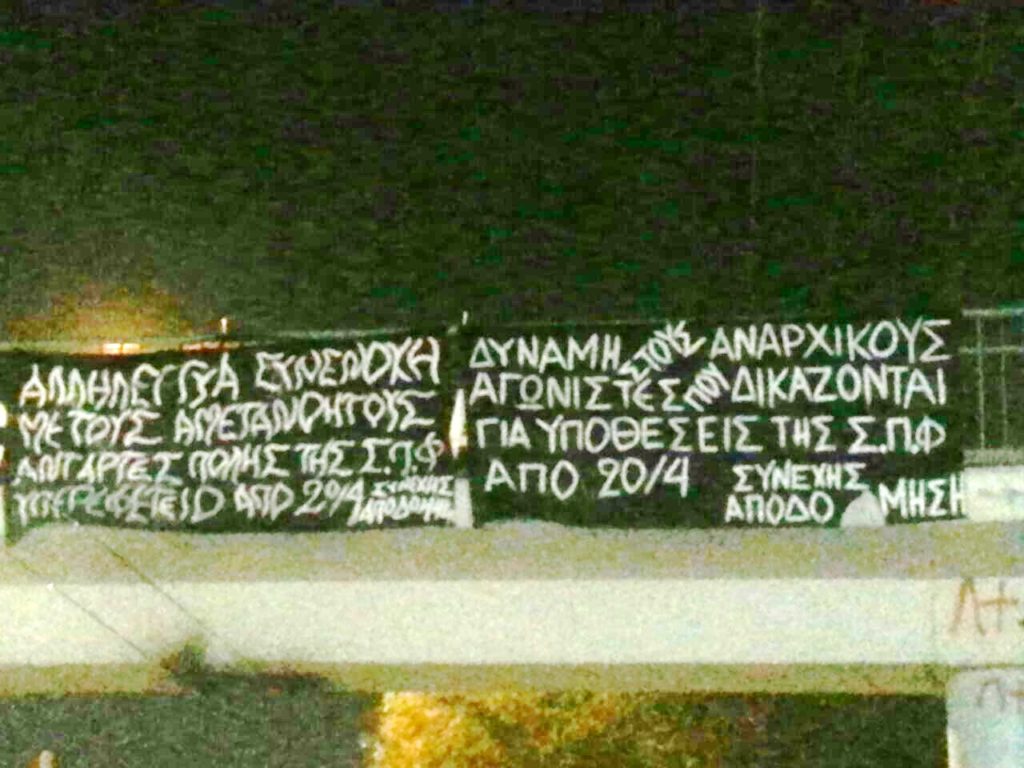 ΑΛΛΗΛΕΓΓΥΑ ΣΥΝΕΝΟΧΗ
ΜΕ ΤΟΥΣ ΑΜΕΤΑΝΟΗΤΟΥΣ
ΑΝΤΑΡΤΕΣ ΠΟΛΗΣ ΤΗΣ Σ.Π.Φ
ΑΠΟ 29/4 ΣΥΝΕΧΗΣ
ΔΥΝΑΜΗ ΣΤΟΥΣ ΑΝΑΡΧΙΚΟΥΣ
ΑΓΩΝΙΣΤΕΣ ΠΟΥ ΔΙΚΑΖΟΝΤΑΙ
ΓΙΑ ΥΠΟΘΕΣΕΙΣ ΤΗΣ Σ.Π.Φ
ΑΠΟ 20/4 ΣΥΝΕΧΗΣ
ΑΠΟΔΟΜΗΣΗ